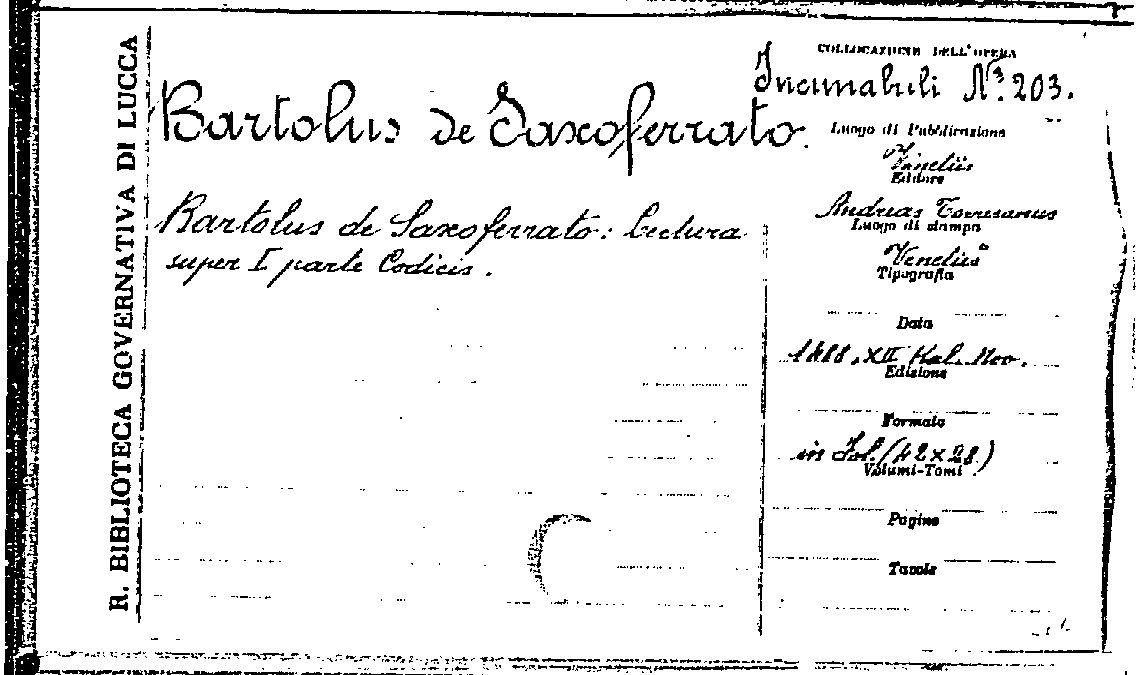 R. BIBLIOTECA GOVERNATIVA DI LUCCA
COLLOCAZIONE DELL'OPERA
Incunabuli N.º 203.
Bartolus de Saxoferrato.
Bartolus de Saxoferrato: Lectura
super I parte Codicis.
Luogo di Pubblicazione
Venetiis
Editore
Andreas Torresanus
Luogo di stampa
Venetiis
Tipografia
Data
1488. XII Kal. Nov.
Edizione
Formato
in fol. (42×28)
Volumi-Tomi
Pagine
Tavole